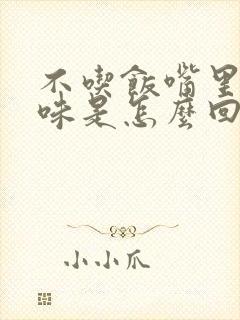 不喫飯嘴里
味是怎麼回
小小爪